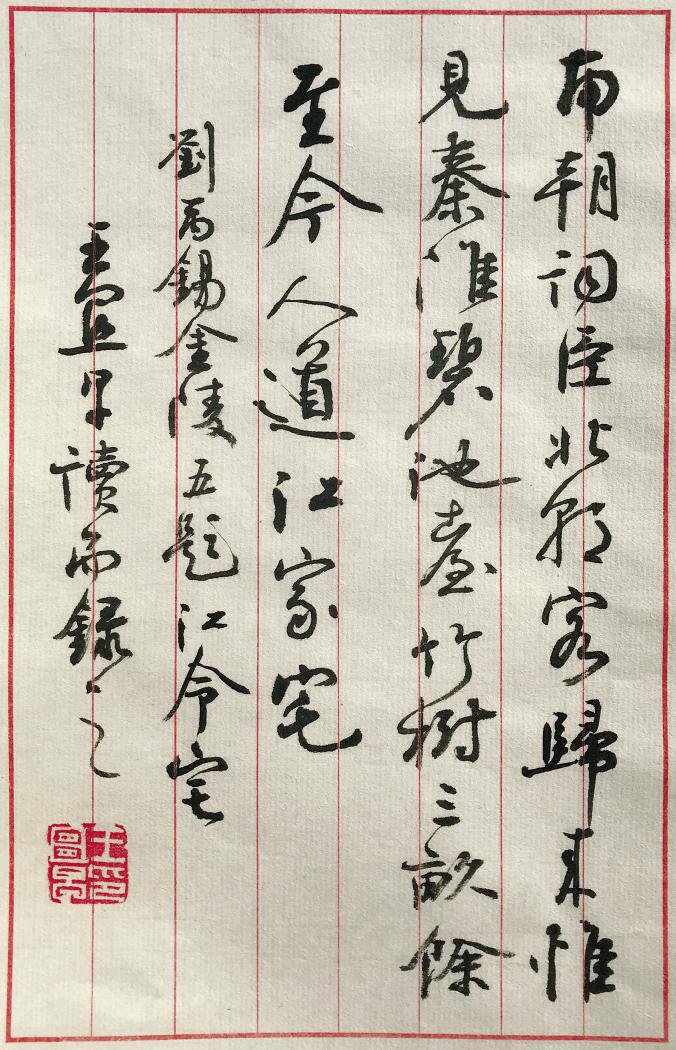 南朝詞臣北朝客歸来惟
見秦淮碧池臺竹樹三畝餘
至今人道江家宅
劉禹錫金陵五題江令宅
王早讀而録之